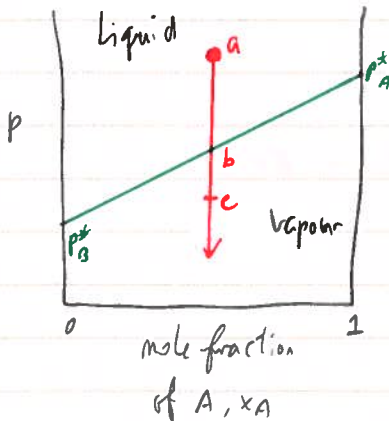 Liquid
a
P*A
p
b
c
Vapour
P*B
0
1
mole fraction
of A, xA